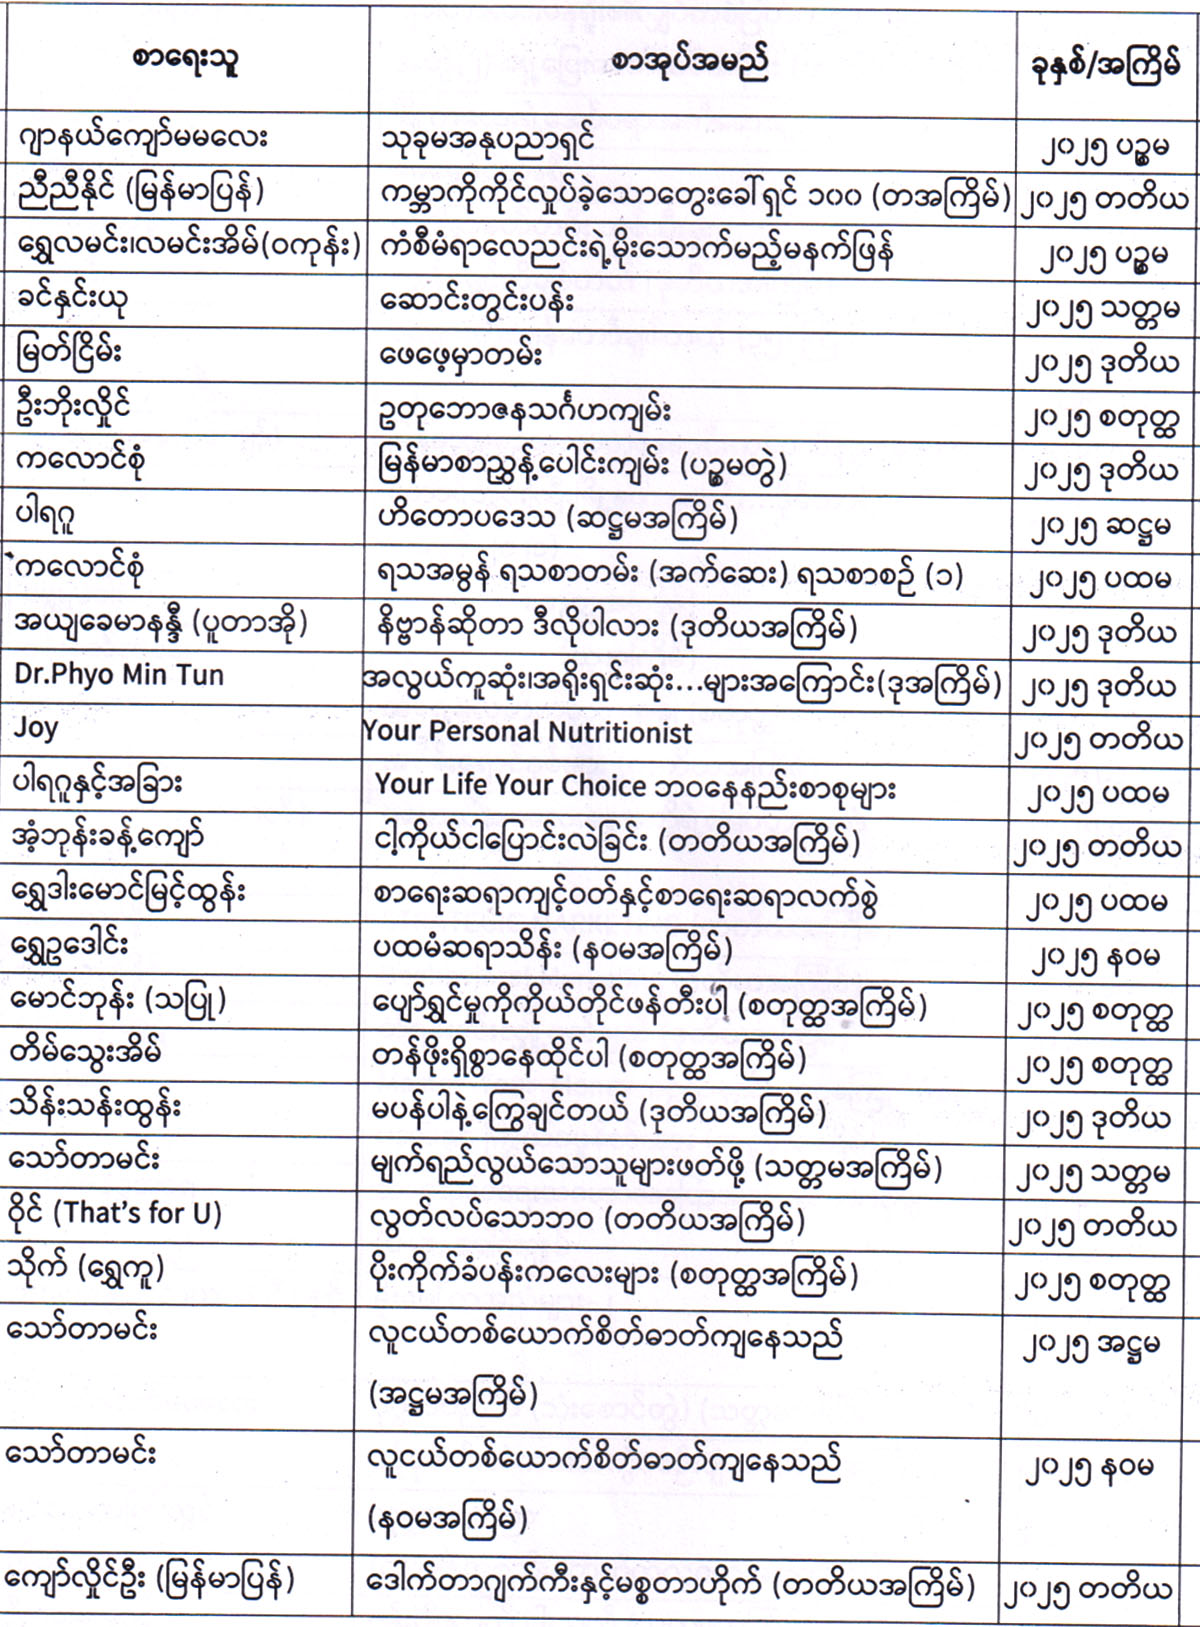 စာရေးသူ စာအုပ်အမည် ခုနှစ်/အကြိမ်
ဂျာနယ်ကျော်မမလေး သုခုမအနုပညာရှင် ၂၀၂၅ ပဉ္စမ
ညီညီနိုင် (မြန်မာပြန်) ကမ္ဘာကိုကိုင်လှုပ်ခဲ့သောတွေးခေါ်ရှင် ၁၀၀ (တအကြိမ်) ၂၀၂၅ တတိယ
ရွှေလမင်း၊လမင်းအိမ်(ဝကုန်း) ကံစီမံရာလေညင်းရဲ့မိုးသောက်မည့်မနက်ဖြန် ၂၀၂၅ ပဉ္စမ
ခင်နှင်းယု ဆောင်းတွင်းပန်း ၂၀၂၅ သတ္တမ
မြတ်ငြိမ်း ဖေဖေ့မှာတမ်း ၂၀၂၅ ဒုတိယ
ဦးဘိုးလှိုင် ဥတုဘောဇနသင်္ဂဟကျမ်း ၂၀၂၅ စတုတ္ထ
ကလောင်စုံ မြန်မာစာညွှန့်ပေါင်းကျမ်း (ပဉ္စမတွဲ) ၂၀၂၅ ဒုတိယ
ပါရဂူ ဟိတောပဒေသ (ဆဋ္ဌမအကြိမ်) ၂၀၂၅ ဆဋ္ဌမ
ကလောင်စုံ ရသအမွန် ရသစာတမ်း (အက်ဆေး) ရသစာစဉ် (၁) ၂၀၂၅ ပထမ
အယျခေမာနန္ဒီ (ပူတာအို) နိဗ္ဗာန်ဆိုတာ ဒီလိုပါလား (ဒုတိယအကြိမ်) ၂၀၂၅ ဒုတိယ
Dr.Phyo Min Tun အလွယ်ကူဆုံး၊အရိုးရှင်းဆုံး...များအကြောင်း(ဒုအကြိမ်) ၂၀၂၅ ဒုတိယ
Joy Your Personal Nutritionist ၂၀၂၅ တတိယ
ပါရဂူနှင့်အခြား Your Life Your Choice ဘဝနေနည်းစာစုများ ၂၀၂၅ ပထမ
အံ့ဘုန်းခန့်ကျော် ငါ့ကိုယ်ငါပြောင်းလဲခြင်း (တတိယအကြိမ်) ၂၀၂၅ တတိယ
ရွှေဒါးမောင်မြင့်ထွန်း စာရေးဆရာကျင့်ဝတ်နှင့်စာရေးဆရာလက်စွဲ ၂၀၂၅ ပထမ
ရွှေဥဒေါင်း ပထမံဆရာသိန်း (နဝမအကြိမ်) ၂၀၂၅ နဝမ
မောင်ဘုန်း (သပြု) ပျော်ရွှင်မှုကိုကိုယ်တိုင်ဖန်တီးပါ (စတုတ္ထအကြိမ်) ၂၀၂၅ စတုတ္ထ
တိမ်သွေးအိမ် တန်ဖိုးရှိစွာနေထိုင်ပါ (စတုတ္ထအကြိမ်) ၂၀၂၅ စတုတ္ထ
သိန်းသန်းထွန်း မပန်ပါနဲ့ကြွေချင်တယ် (ဒုတိယအကြိမ်) ၂၀၂၅ ဒုတိယ
သော်တာမင်း မျက်ရည်လွယ်သောသူများဖတ်ဖို့ (သတ္တမအကြိမ်) ၂၀၂၅ သတ္တမ
ဝိုင် (That's for U) လွတ်လပ်သောဘဝ (တတိယအကြိမ်) ၂၀၂၅ တတိယ
သိုက် (ရွှေကူ) ပိုးကိုက်ခံပန်းကလေးများ (စတုတ္ထအကြိမ်) ၂၀၂၅ စတုတ္ထ
သော်တာမင်း လူငယ်တစ်ယောက်စိတ်ဓာတ်ကျနေသည် ၂၀၂၅ အဋ္ဌမ
(အဋ္ဌမအကြိမ်)
သော်တာမင်း လူငယ်တစ်ယောက်စိတ်ဓာတ်ကျနေသည် ၂၀၂၅ နဝမ
(နဝမအကြိမ်)
ကျော်လှိုင်ဦး (မြန်မာပြန်) ဒေါက်တာဂျက်ကီးနှင့်မစ္စတာဟိုက် (တတိယအကြိမ်) ၂၀၂၅ တတိယ